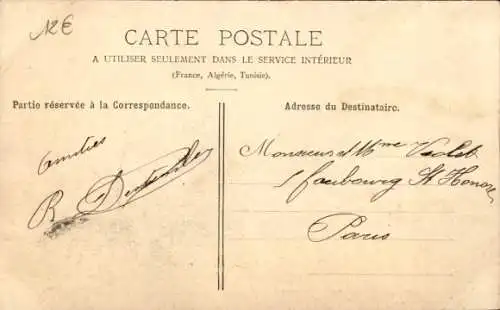 12€
CARTE POSTALE
A UTILISER SEULEMENT DANS LE SERVICE INTÉRIEUR
(France, Algérie, Tunisie).
Partie réservée à la Correspondance.
Adresse du Destinataire.
amitiés
R
Monsieur et Mme Violet
faubourg St Honoré
Paris